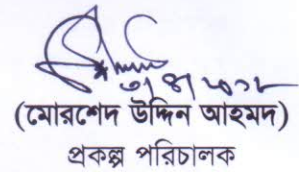 (মোরশেদ উদ্দিন আহমদ)
প্রকল্প পরিচালক